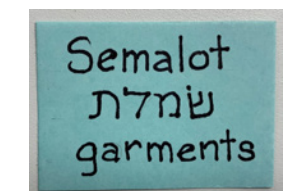 Semalot
שׂמלת
garments